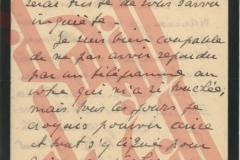 serai très de vous savoir
inquiète.
Je suis bien coupable
de ne pas avoir répondu
par un télégramme au
votre qui m'a si touchée,
mais tous les jours je
croyais pouvoir
et tout s'y